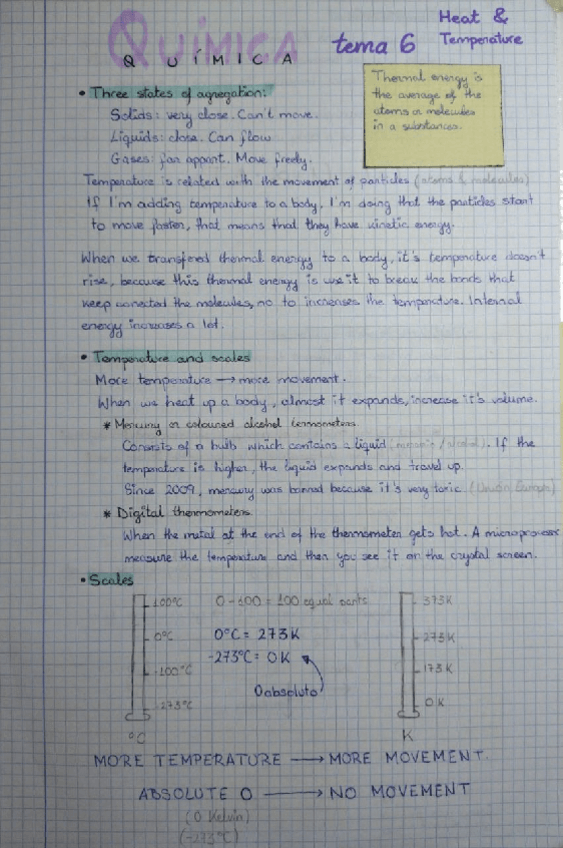 QUÍMICA
QUÍMICA
tema 6
Heat &
Temperature
Thermal energy is
the average of the
atoms or molecules
in a substances.
• Three states of agregation:
Solids: very close. Can't move.
Liquids: close. Can flow
Gases: far appart. Move freely.
Temperature is related with the movement of particles (atoms & molecules)
If I'm adding temperature to a body, I'm doing that the particles start
to move faster, that means that they have kinetic energy.
When we transfered thermal energy to a body, it's temperature doesn't
rise, because this thermal energy is use it to break the bonds that
keep conected the molecules, no to increases the temperature. Internal
energy increases a lot.
• Temperature and scales
More temperature → more movement.
When we heat up a body, almost it expands, increase it's volume.
* Mercury or coloured alcohol termometers
Consists of a bulb which contains a liquid (/ alcohol). If the
temperature is higher, the liquid expands and travel up.
Since 2009, mercury was banned because it's very toxic (Union Europh)
* Digital thermometers
When the metal at the end of the thermometer gets hot. A microprocesor
measure the temperature and then you see it on the crystal screen.
• Scales
100°C
0°C
-100°C
-273°C
°C
0-100 = 100 equal parts
0°C = 273K
-273°C = 0K
0 absoluto
373K
273K
173K
0K
K
MORE TEMPERATURE → MORE MOVEMENT.
ABSOLUTE 0 → NO MOVEMENT
(0 Kelvin)
(-273°C)